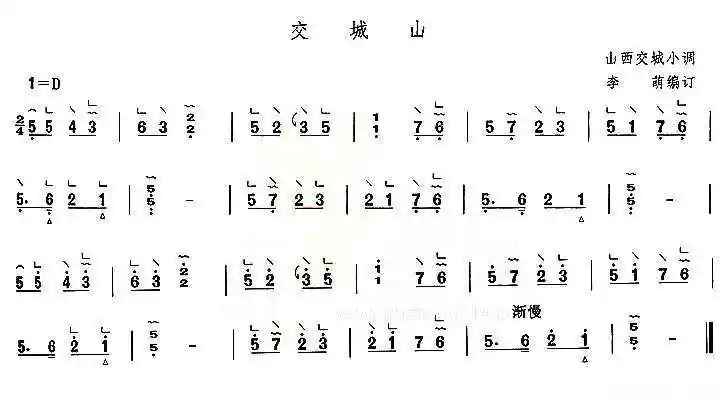 交 城 山
山西交城小调
1=D
李 萌编订
2/4 5 5 4 3 | 6 3 2 2 | 5 2 3 5 | 1 1 7 6 | 5 7 2 3 | 5 1 7 6 |
5. 6 2 1 | 5 5 - | 5 7 2 3 | 2 1 7 6 | 5. 6 2 1 | 5 5 - |
5 5 4 3 | 6 3 2 2 | 5 2 3 5 | 1 1 7 6 | 5 7 2 3 | 5 1 7 6 |
渐慢
5. 6 2 1 | 5 5 - | 5 7 2 3 | 2 1 7 6 | 5. 6 2 1 | 5 5 - ‖